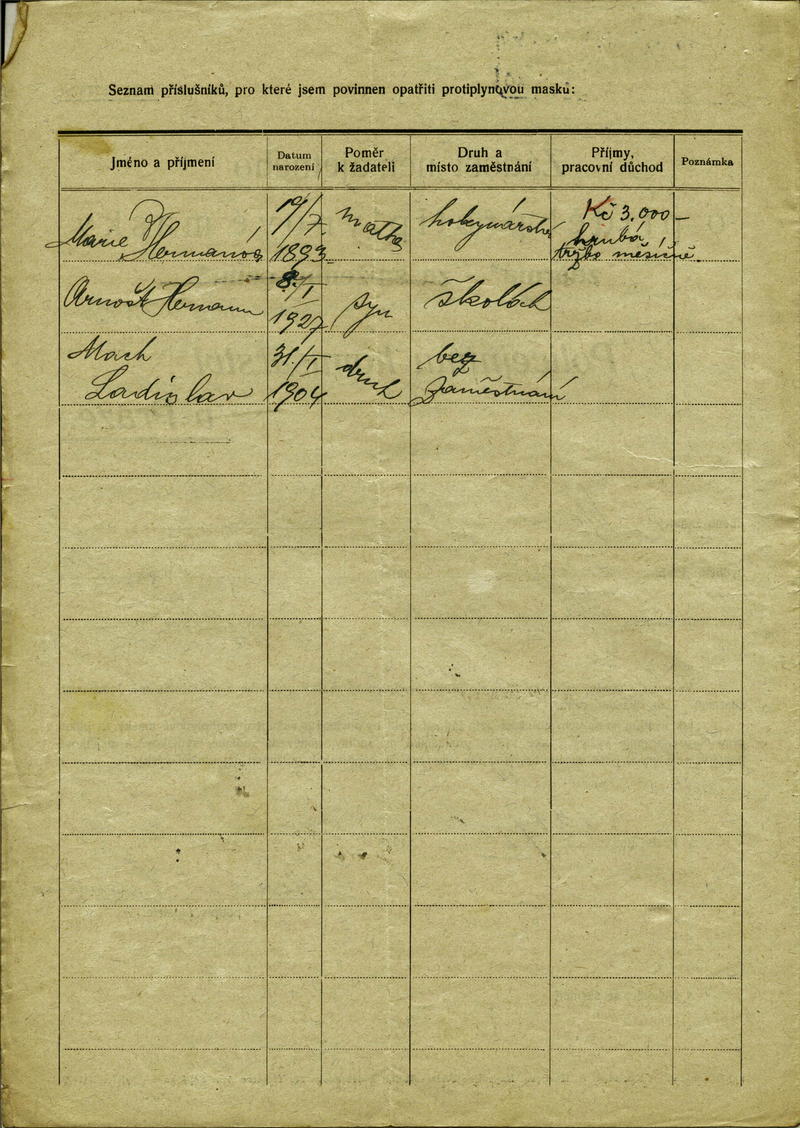 Seznam příslušníků, pro které jsem povinnen opatřiti protiplynovou masku:
Jméno a příjmení
Datum narození
Poměr k žadateli
Druh a místo zaměstnání
Příjmy, pracovní důchod
Poznámka
Marie Hermanová
19/7. 1893
matka
hokynářství
Kč 3.000 –
hrubá
tržba měsíčně.
Arnošt Hermann
8./I 1927
syn
školák
Mach
Ladislav
31./I 1904
druh
bez
zaměstnání